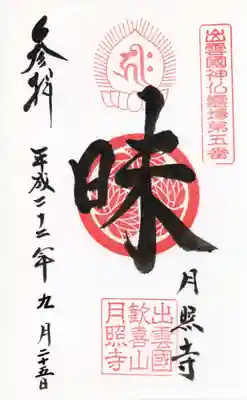 出雲國神仏霊場第五番
昧
月照寺
出雲國
歡喜山
月照寺
参拝
平成二十二年九月二十五日